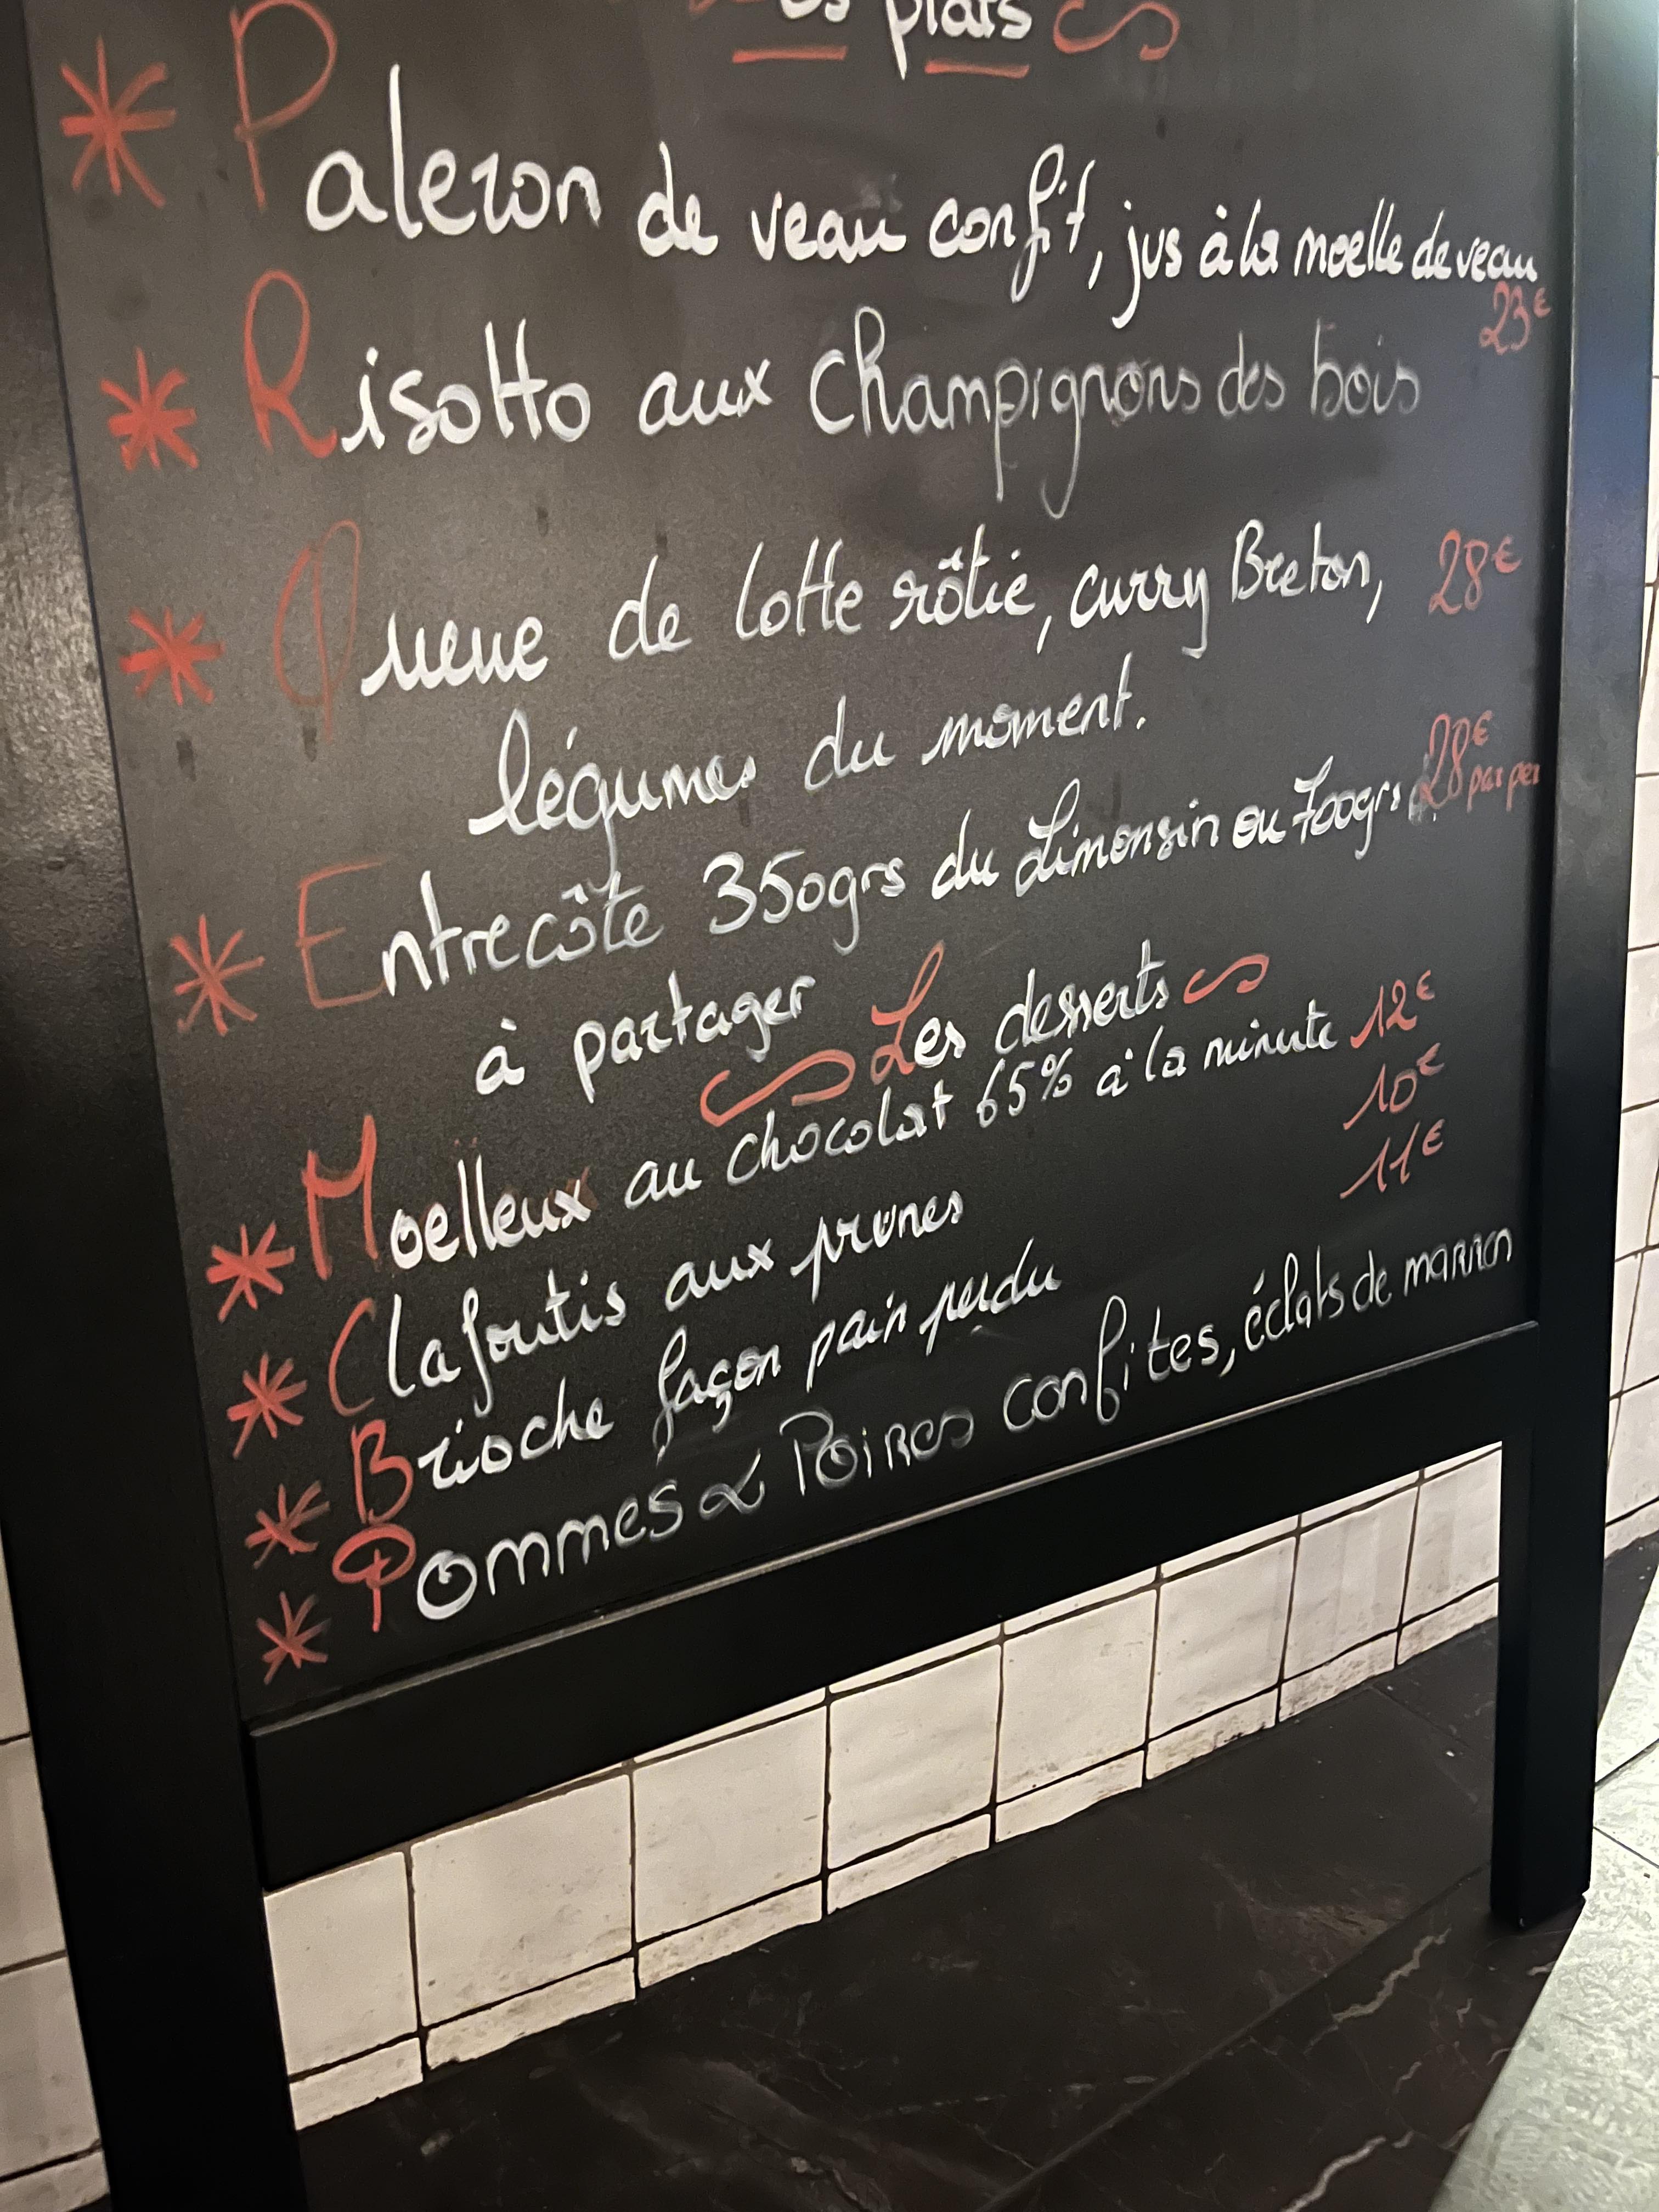 es plats
* Paleron de veau confit, jus à la moelle de veau
23€
* Risotto aux champignons des bois
* Queue de lotte rôtie, curry Breton, 28€
légumes du moment.
28€
par per
* Entrecôte 350grs du Limousin ou 700grs
à partager
Les desserts
* Moelleux au chocolat 65% à la minute 12€
* Clafoutis aux prunes 10€
* Brioche façon pain perdu 11€
* Pommes & Poires confites, éclats de marron